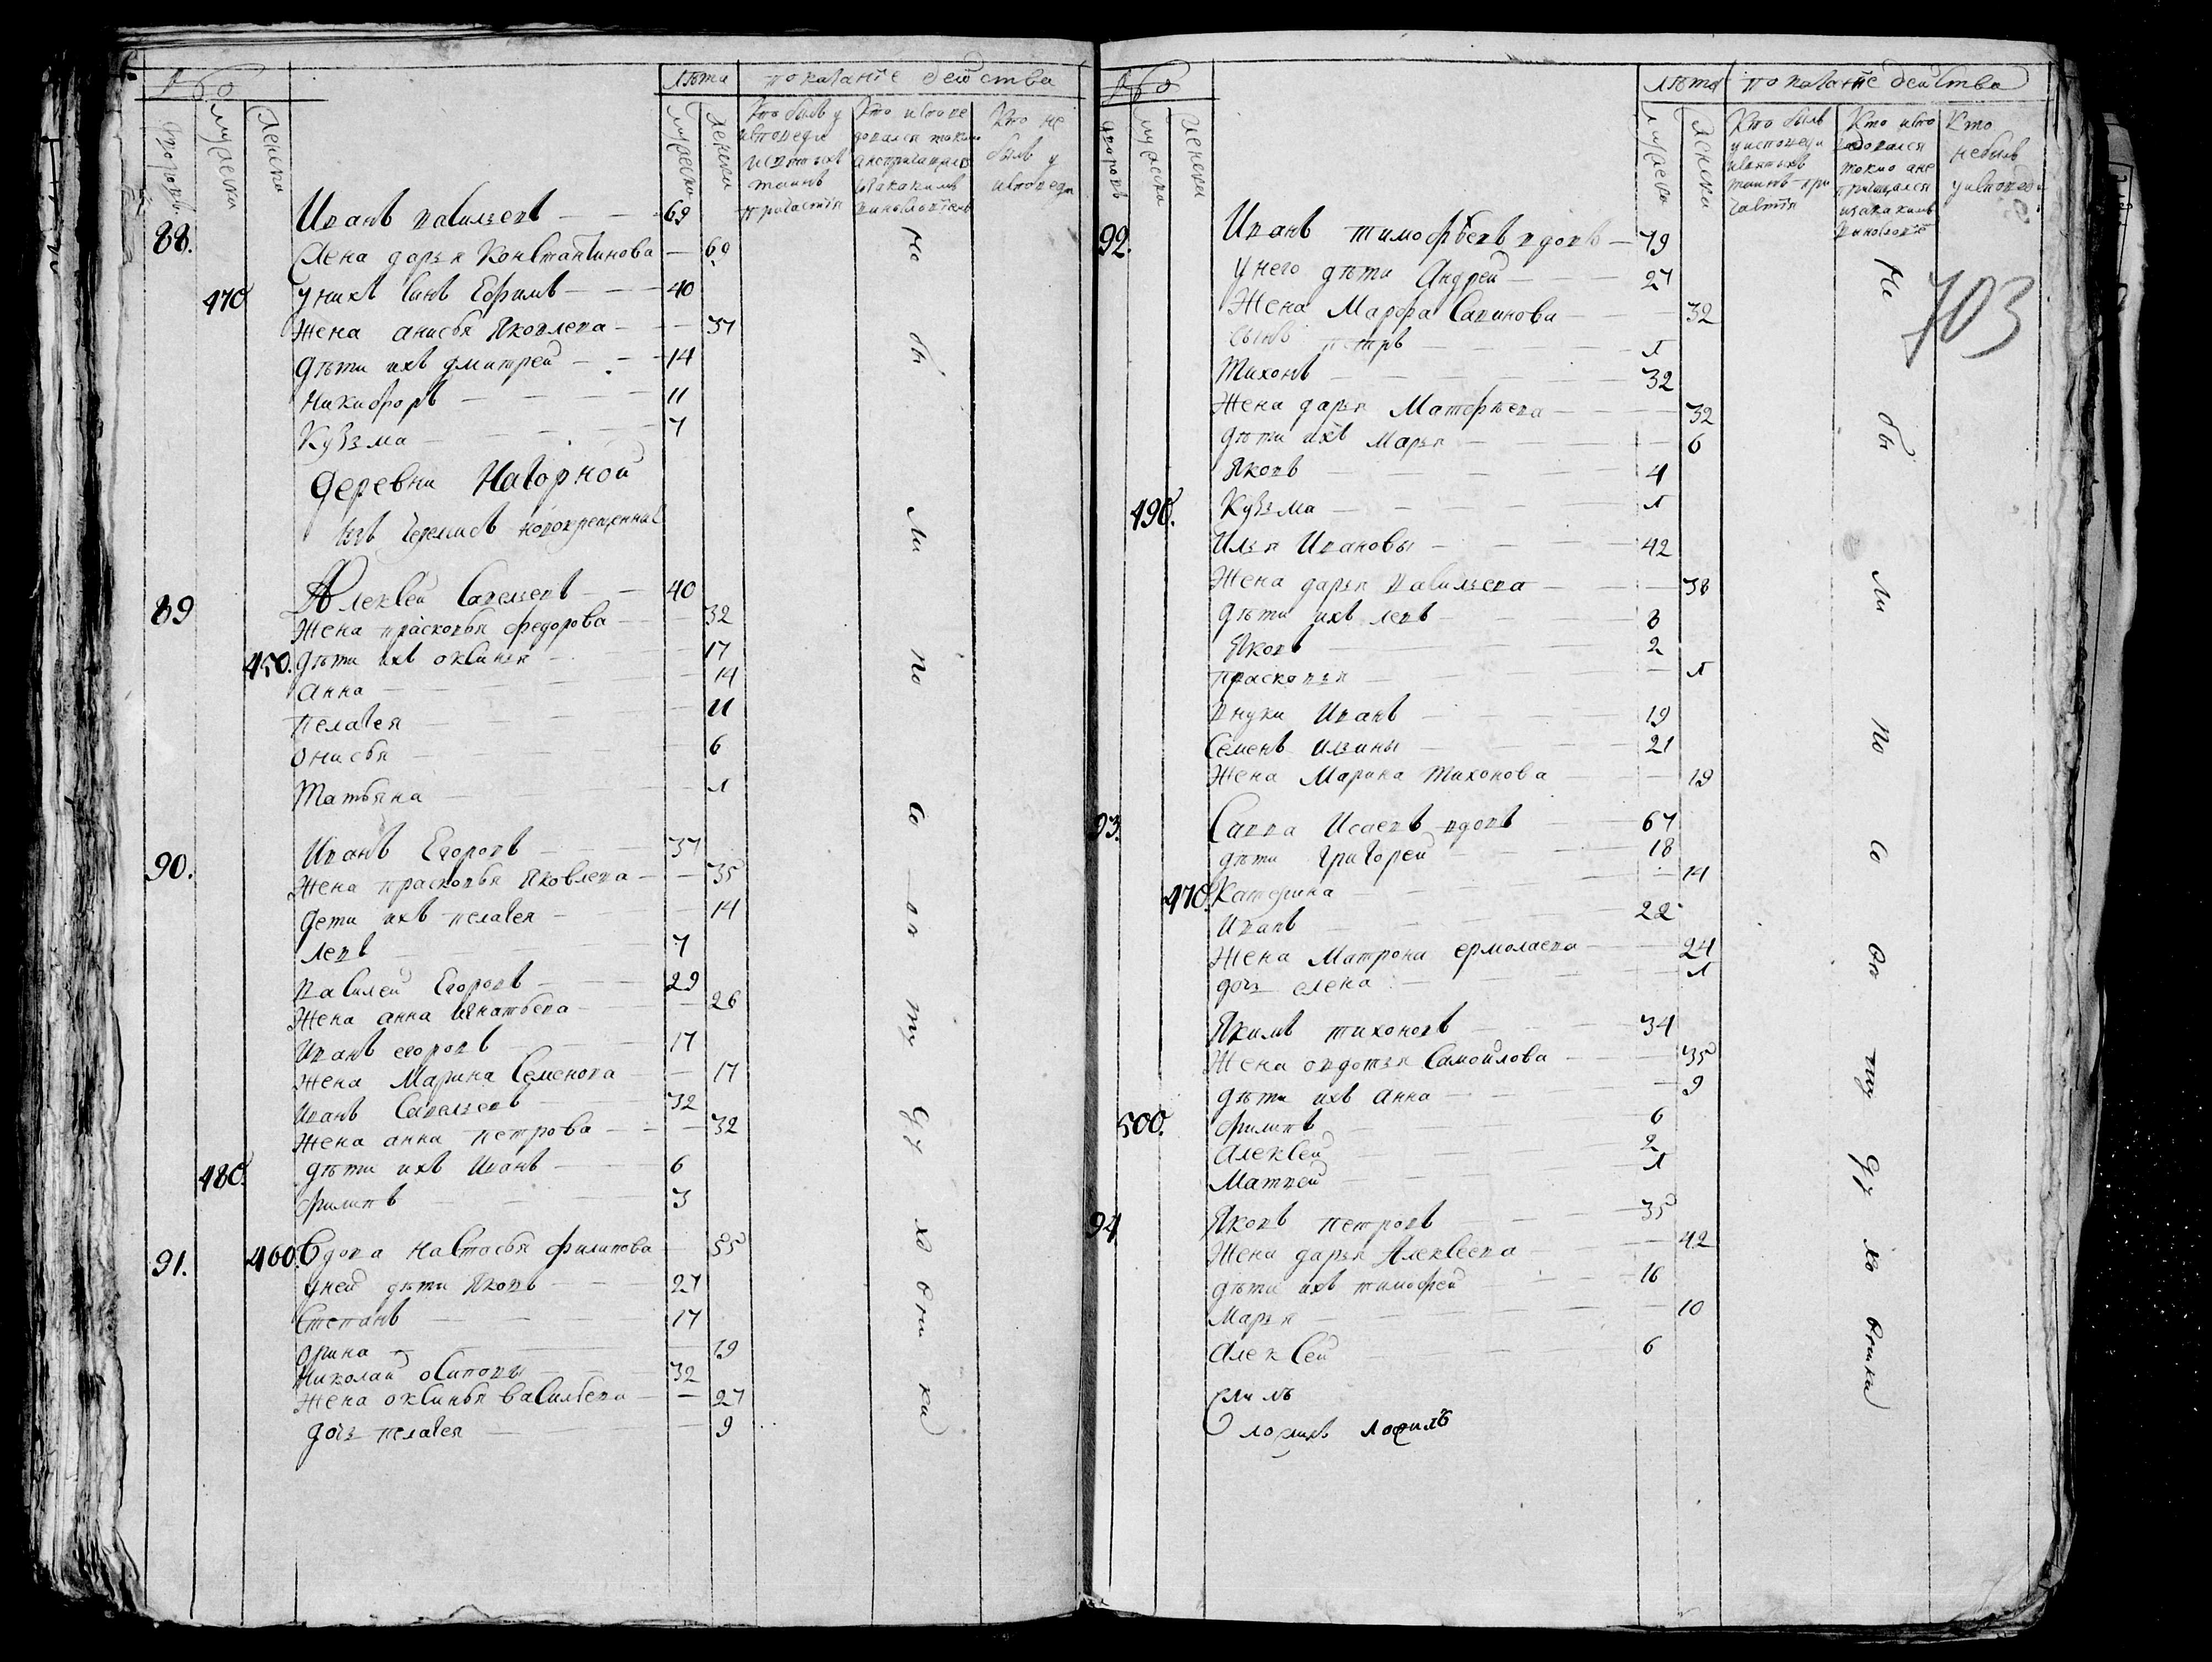 лѣта показанїе действа
дворовъ
мужеска
женска
мужеска
женска
Кто былъ у
исповеди
и святыхъ
таинъ
причастїя
Кто испове
довался токмо
а не причащался
и за какимъ
винословїемъ
Кто не
былъ у
исповеди
88. Иванъ васильевъ 69
Жена дарья Константинова 60
470 у нихъ сынъ Ефимъ 40
Жена анисья Яковлева 37
дѣти ихъ дмитрей 14
Никифоръ 11
Кузма 7
деревни Нагорной
изъ Черемисъ новокрещенныхъ
89 Алексей савельевъ 40
Жена прасковья федорова 32
450. дѣти ихъ оксинья 17
анна 14
пелагея 11
онисья 6
Татьяна 1
90. Иванъ Егоровъ 37
Жена прасковья Яковлева 35
дети ихъ пелагея 14
левъ 7
василей Егоровъ 29
Жена анна игнатьева 26
Иванъ егоровъ 17
Жена Марина Семенова 17
иванъ Савельевъ 32
Жена анна петрова 32
480. дѣти ихъ Иванъ 6
филипъ 3
91. 460. вдова настасья филипова 55
у ней дѣти Яковъ 27
степанъ 17
орина 19
Николай осиповы 32
Жена оксинья васильева 27
дочь пелагея 9
Не бы ли по со ст ву ду хо вни ка
лѣта показанїе действа
дворовъ
мужеска
женска
мужеска
женска
Кто былъ
у исповеди
и святыхъ
таинъ при
частїя
Кто испо
ведовался
токмо а не
причащался
и за какимъ
Кто
не былъ
у исповеди
703
92. Иванъ тимофѣевъ вдовъ 79
у него дѣти Андрей 27
Жена Марфа Савинова 32
сынъ петръ 1
Тихонъ 32
Жена дарья Матфѣева 32
дѣти ихъ Марья 6
Яковъ 4
490. Кузма 1
Илья Ивановы 42
Жена дарья васильева 38
дѣти ихъ левъ 8
Яковъ 2
прасковья 1
внуки Иванъ 19
Семенъ ильины 21
Жена Марина Тихонова 19
93. Савва Исаевъ вдовъ 67
дѣти григорей 18
470. Катерина 14
Иванъ 22
Жена Матрона ермолаева 24
дочь елена 1
Якимъ тихоновъ 34
Жена овдотья Самойлова 35
дѣти ихъ анна 9
500. филипъ 6
алексей 2
Матвей 1
94 Яковъ петровъ 35
Жена дарья Алексеева 42
дѣти ихъ тимофей 16
Марья 10
алексей 6